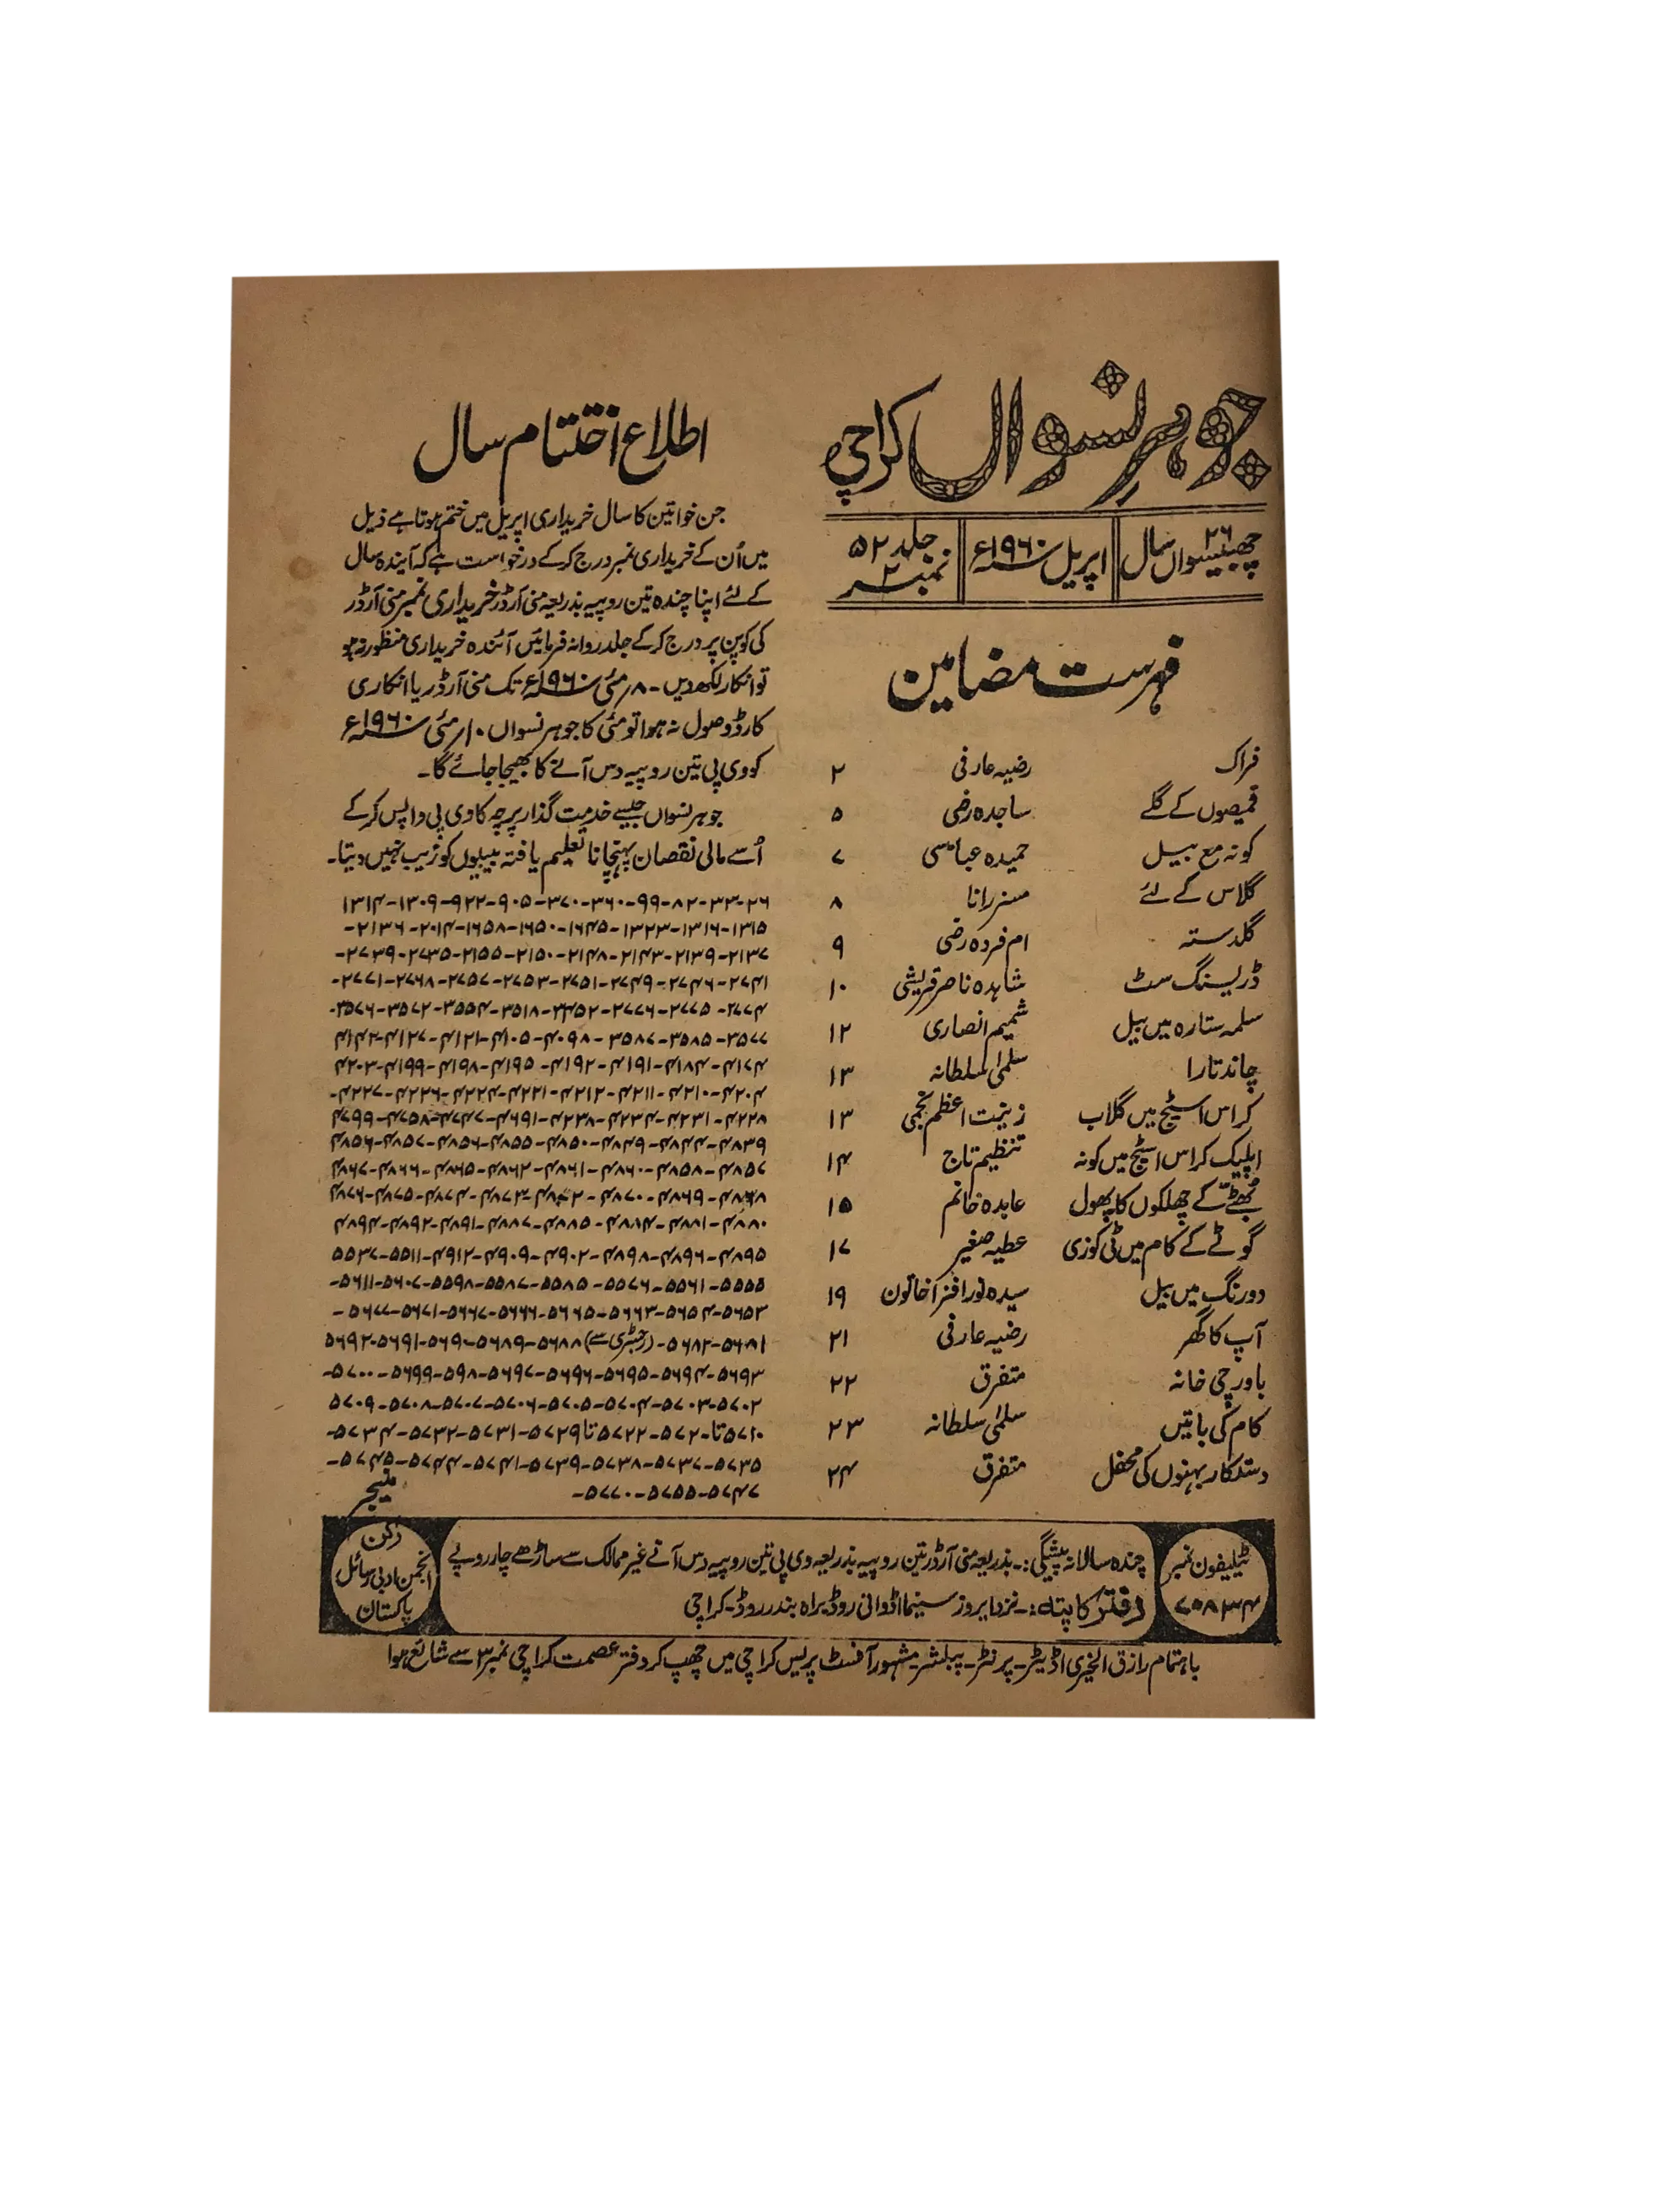 جوہر نسواں کراچی
چھبیسواں ۲۶ سال
اپریل ۱۹۶۰ء
جلد ۵۲
نمبر ۲
فہرست مضامین
فراک رضیہ عارفی ۲
قمیصوں کے گلے ساجدہ رضی ۵
کونہ مع بیل حمیدہ عباسی ۷
گلاس کے لئے مسز رانا ۸
گلدستہ ام فردہ رضی ۹
ڈریسنگ سٹ شاہدہ ناصر قریشی ۱۰
سلمہ ستارہ میں بیل شمیم انصاری ۱۲
چاند تارا سلمیٰ سلطانہ ۱۳
کراس اسٹیچ میں گلاب زینت اعظم نجمی ۱۳
اپلیک کراس اسٹیچ میں کونہ تنظیم تاج ۱۴
بُھٹے کے چھلکوں کا پھول عابدہ خانم ۱۵
گوٹے کے کام میں ٹی کوزی عطیہ صغیر ۱۷
دو رنگ میں بیل سیدہ نور افزا خاتون ۱۹
آپ کا گھر رضیہ عارفی ۲۱
باورچی خانہ متفرق ۲۲
کام کی باتیں سلمیٰ سلطانہ ۲۳
دستکار بہنوں کی محفل متفرق ۲۴
اطلاع اختتام سال
جن خواتین کا سال خریداری اپریل میں ختم ہوتا ہے ذیل
میں اُن کے خریداری نمبر درج کرکے درخواست ہے کہ آیندہ سال
کے لئے اپنا چندہ تین روپیہ بذریعہ منی آرڈر خریداری نمبر منی آرڈر
کی کوپن پر درج کرکے جلد روانہ فرمائیں آئندہ خریداری منظور نہ ہو
تو انکار لکھدیں ۔ ۸؍ مئی ۱۹۶۰ء تک منی آرڈر یا انکاری
کارڈ وصول نہ ہوا تو مئی کا جوہر نسواں ۱۰؍ مئی ۱۹۶۰ء
کو وی پی تین روپیہ دس آنے کا بھیجا جائے گا۔
جوہر نسواں جیسے خدمت گذار پرچہ کا وی پی واپس کرکے
اُسے مالی نقصان پہنچانا تعلیم یافتہ بیبیوں کو زیب نہیں دیتا۔
۲۶-۳۳-۸۲-۹۹-۳۶۰-۳۷۰-۹۰۵-۹۲۲-۱۳۰۹-۱۳۱۴
۱۳۱۵-۱۳۱۶-۱۳۲۳-۱۶۴۵-۱۶۵۰-۱۶۵۸-۲۰۱۴-۲۱۳۶-
۲۱۳۷-۲۱۳۹-۲۱۴۳-۲۱۴۸-۲۱۵۰-۲۱۵۵-۲۷۳۵-۲۷۳۹-
۲۷۴۱-۲۷۴۶-۲۷۴۹-۲۷۵۱-۲۷۵۳-۲۷۵۷-۲۷۶۸-۲۷۷۱-
۳۵۷۷-۳۵۸۵-۳۵۸۷-۴۰۹۸-۴۱۰۵-۴۱۲۱-۴۱۲۷-۴۱۴۲
۴۱۷۴-۴۱۸۴-۴۱۹۱-۴۱۹۲-۴۱۹۵-۴۱۹۸-۴۱۹۹-۴۲۰۳
۴۲۰۴-۴۲۱۰-۴۲۱۱-۴۲۱۲-۴۲۲۱-۴۲۲۴-۴۲۲۶-۴۲۲۷-
۴۸۸۰-۴۸۸۱-۴۸۸۴-۴۸۸۵-۴۸۸۷-۴۸۹۱-۴۸۹۲-۴۸۹۴
۴۸۹۵-۴۸۹۶-۴۸۹۸-۴۹۰۲-۴۹۰۹-۴۹۱۲-۵۵۱۱-۵۵۳۷
۵۵۵۵-۵۵۶۱-۵۵۷۶-۵۵۷۵-۵۵۸۷-۵۵۹۸-۵۶۰۷-۵۶۱۱-
۵۶۵۳-۵۶۵۴-۵۶۶۳-۵۶۶۵-۵۶۶۶-۵۶۶۷-۵۶۷۱-۵۶۷۷-
۵۶۸۱-۵۶۸۲-(رجسٹری سے) ۵۶۸۸-۵۶۸۹-۵۶۹۰-۵۶۹۱-۵۶۹۲
۵۶۹۳-۵۶۹۴-۵۶۹۵-۵۶۹۶-۵۶۹۷-۵۹۸-۵۶۹۹-۵۷۰۰-
۵۷۰۲-۵۷۰۳-۵۷۰۴-۵۷۰۵-۵۷۰۶-۵۷۰۷-۵۷۰۸-۵۷۰۹
۵۷۱۰تا-۵۷۲-۵۷۲۲تا۵۷۲۹-۵۷۳۱-۵۷۳۲-۵۷۳۴-
۵۷۳۵-۵۷۳۷-۵۷۳۸-۵۷۳۹-۵۷۴۱-۵۷۴۴-۵۷۴۵-
۵۷۴۷-۵۷۵۵-۵۷۷۰-
منیجر
ٹیلیفون نمبر
۷۰۸۳۴
چندہ سالانہ پیشگی:۔ بذریعہ منی آرڈر تین روپیہ بذریعہ وی پی تین روپیہ دس آنے غیر ممالک سے ساڑھے چار روپے
دفتر کا پتہ:۔ نزد ایروز سینما اڈوانی روڈ براہ بندر روڈ۔ کراچی
رکن
انجمن ادبی رسائل
پاکستان
باہتمام رازق الخیری اڈیٹر۔ پرنٹر۔ پبلشر۔ مشہور آفسٹ پریس کراچی میں چھپ کر دفتر عصمت کراچی نمبر ۳ سے شائع ہوا